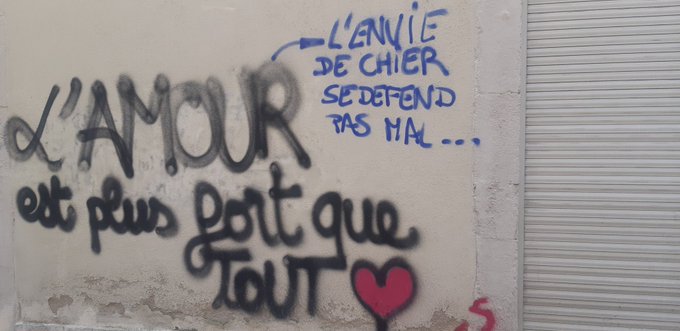 L'AMOUR
est plus fort que
TOUT
L'ENVIE
DE CHIER
SE DEFEND
PAS MAL...
S